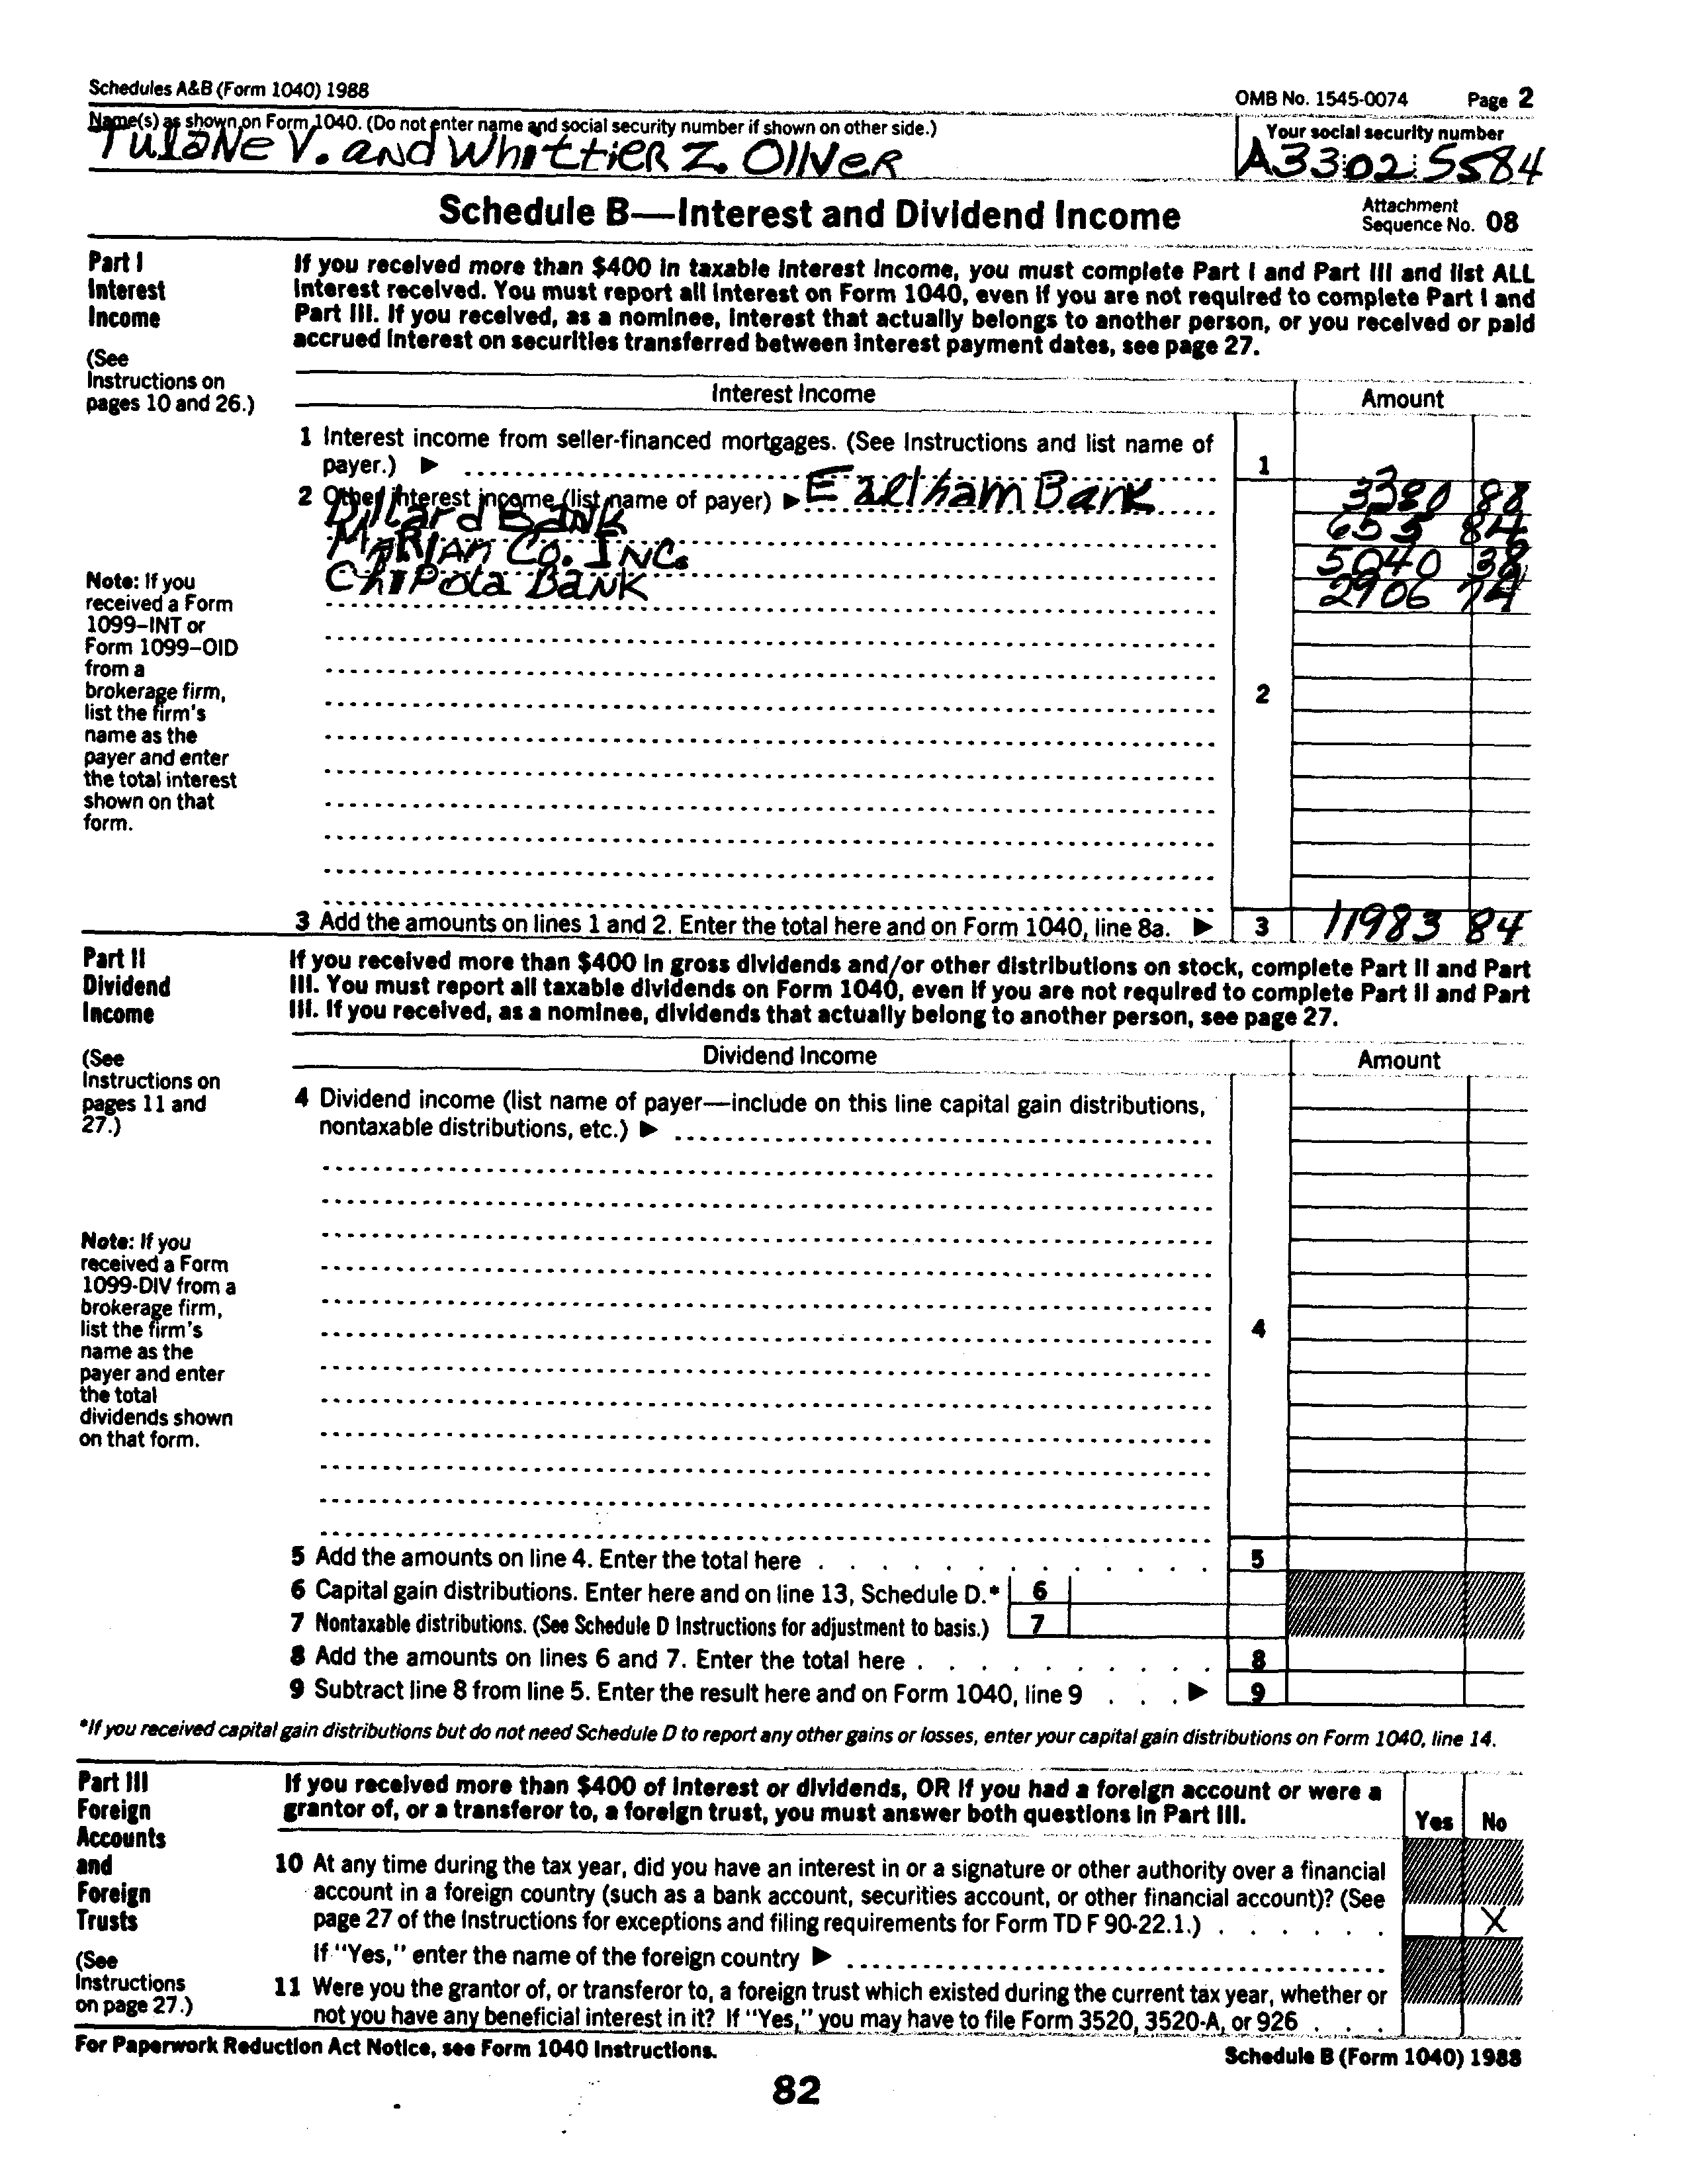 Schedules A&B (Form 1040) 1988
OMB No. 1545-0074 Page 2
Name(s) as shown on Form 1040. (Do not enter name and social security number if shown on other side.)
Your social security number
Tulane V. and Whittier Z. Oliver
A3302 5584
Schedule B—Interest and Dividend Income
Attachment
Sequence No. 08
Part I
Interest
Income
(See
Instructions on
pages 10 and 26.)
If you received more than $400 in taxable interest income, you must complete Part I and Part III and list ALL
interest received. You must report all interest on Form 1040, even if you are not required to complete Part I and
Part III. If you received, as a nominee, interest that actually belongs to another person, or you received or paid
accrued interest on securities transferred between interest payment dates, see page 27.
Interest Income Amount
1 Interest income from seller-financed mortgages. (See Instructions and list name of
payer.) ▶ 1
2 Other interest income (list name of payer) ▶ Earlham Bank 3380 88
Dillard Bank 655 84
Marian Co. Inc. 5040 38
Chipola Bank 2906 74
Note: If you
received a Form
1099–INT or
Form 1099–OID
from a
brokerage firm,
list the firm's
name as the
payer and enter
the total interest
shown on that
form.
2
3 Add the amounts on lines 1 and 2. Enter the total here and on Form 1040, line 8a. ▶ 3 11983 84
Part II
Dividend
Income
(See
Instructions on
pages 11 and
27.)
If you received more than $400 in gross dividends and/or other distributions on stock, complete Part II and Part
III. You must report all taxable dividends on Form 1040, even if you are not required to complete Part II and Part
III. If you received, as a nominee, dividends that actually belong to another person, see page 27.
Dividend Income Amount
4 Dividend income (list name of payer—include on this line capital gain distributions,
nontaxable distributions, etc.) ▶
Note: If you
received a Form
1099-DIV from a
brokerage firm,
list the firm's
name as the
payer and enter
the total
dividends shown
on that form.
4
5 Add the amounts on line 4. Enter the total here . . . . . . . . . . . . . 5
6 Capital gain distributions. Enter here and on line 13, Schedule D.* 6
7 Nontaxable distributions. (See Schedule D Instructions for adjustment to basis.) 7
8 Add the amounts on lines 6 and 7. Enter the total here . . . . . . . . . . 8
9 Subtract line 8 from line 5. Enter the result here and on Form 1040, line 9 . . . ▶ 9
*If you received capital gain distributions but do not need Schedule D to report any other gains or losses, enter your capital gain distributions on Form 1040, line 14.
Part III
Foreign
Accounts
and
Foreign
Trusts
(See
Instructions
on page 27.)
If you received more than $400 of interest or dividends, OR if you had a foreign account or were a
grantor of, or a transferor to, a foreign trust, you must answer both questions in Part III.
Yes No
10 At any time during the tax year, did you have an interest in or a signature or other authority over a financial
account in a foreign country (such as a bank account, securities account, or other financial account)? (See
page 27 of the Instructions for exceptions and filing requirements for Form TD F 90-22.1.) . . . . . . X
If "Yes," enter the name of the foreign country ▶
11 Were you the grantor of, or transferor to, a foreign trust which existed during the current tax year, whether or
not you have any beneficial interest in it? If "Yes," you may have to file Form 3520, 3520-A, or 926 . . .
For Paperwork Reduction Act Notice, see Form 1040 Instructions.
Schedule B (Form 1040) 1988
82